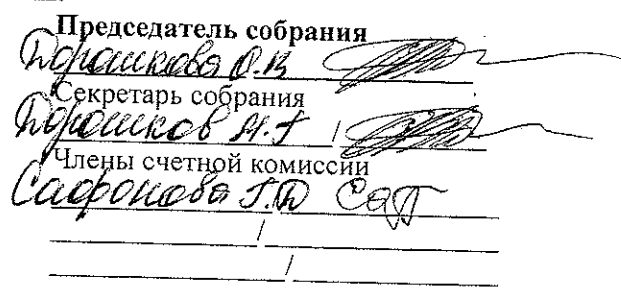 Председатель собрания
Дорошкова О.В
Секретарь собрания
Дорошков А.Г /
Члены счетной комиссии
Сафонова Г.Д Саф
/
/